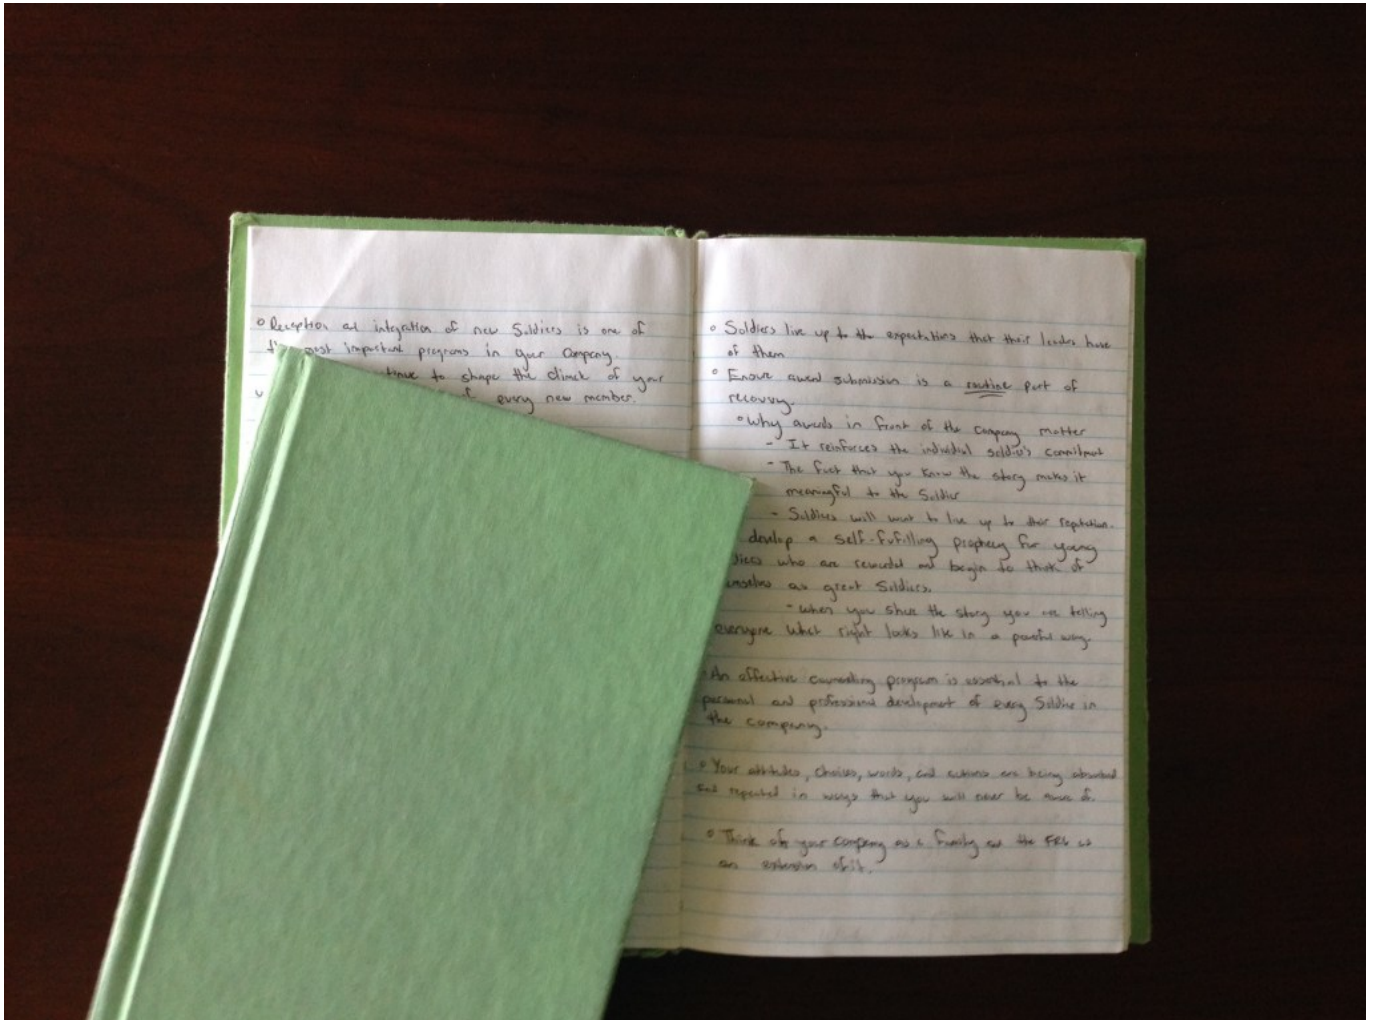 ° Reception and integration of new Soldiers is one of
most important programs in your Company.
to shape the climate of your
of every new member.
° Soldiers live up to the expectations that their leaders have
of them
° Ensure award submission is a routine part of
recovery.
° Why awards in front of the company matter
- It reinforces the individual soldier's commitment
- The fact that you know the story makes it
meaningful to the Soldier
- Soldiers will want to live up to their reputation.
develop a self-fufilling prophecy for young
who are rewarded and begin to think of
as great Soldiers.
- When you share the story you are telling
everyone what right looks like in a powerful way.
° An effective counseling program is essential to the
personal and professional development of every Soldier in
the company.
° Your attitudes, choices, words, and actions are being absorbed
and repeated in ways that you will never be aware of.
° Think of your company as a family and the FRG as
an extension of it.